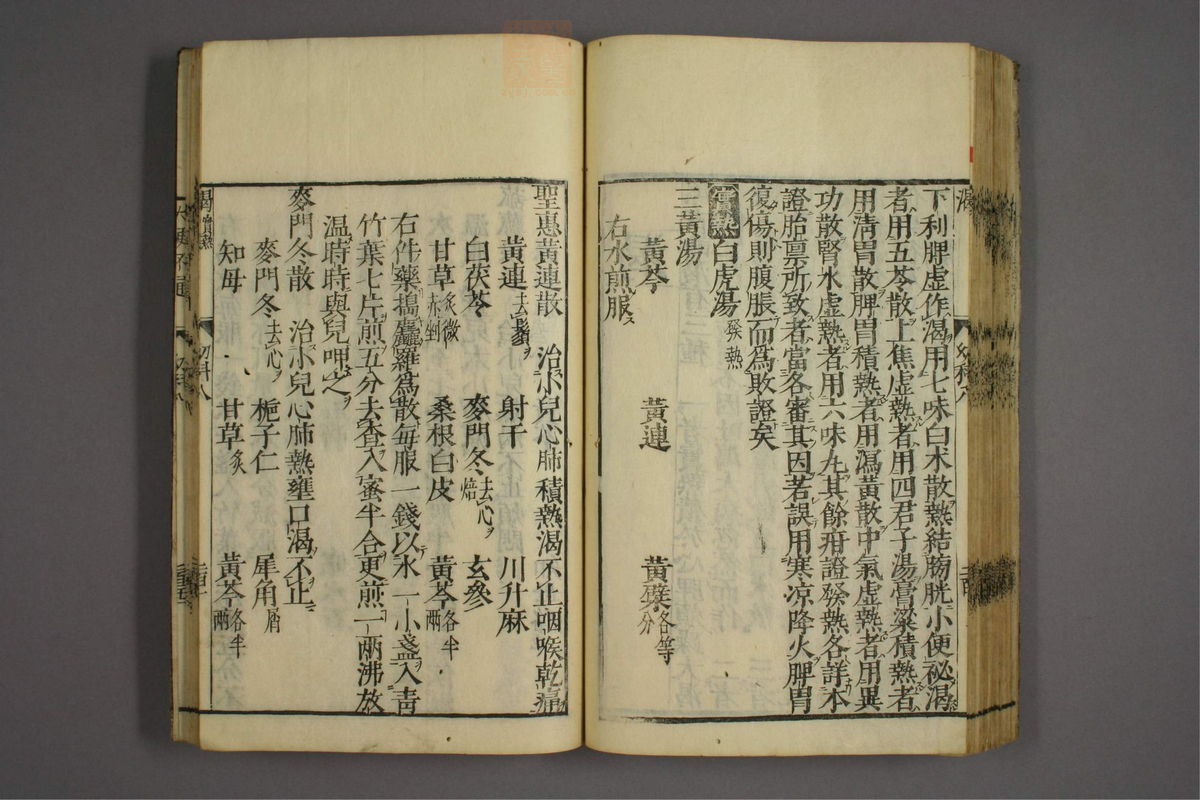 下利脾虚作渴用七味白术散熱結膀胱小便祕渴
者用五苓散上焦虚熱者用四君子湯膏粱積熱者
用清胃散脾胃積熱者用瀉黄散中氣虚熱者用異
功散腎水虚熱者用六味丸其餘疳證發熱各詳本
證胎禀所致者當各審其因若誤用寒凉降火脾胃
復傷則腹脹而爲敗證矣
實熱 白虎湯 發熱
三黄湯
黄芩 黄連 黄蘗各等分
右水煎服
聖惠黄連散 治小兒心肺積熱渴不止咽喉乾痛
黄連去鬚 射干 川升麻
白茯苓 麥門冬去心焙 玄參
甘草炙微赤剉 桑根白皮 黄芩各半兩
右件藥搗麤羅爲散毎服一錢以水一小盞入青
竹葉七片煎五分去査入蜜半合更煎一兩沸放
温時時與兒呷之
麥門冬散 治小兒心肺熱壅口渴不止
麥門冬去心 梔子仁 犀角屑
知母 甘草炙 黄芩各半兩
渴 實熱